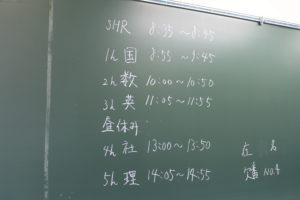 SHR 8:35～8:45
1h 国 8:55～9:45
2h 数 10:00～10:50
3h 英 11:05～11:55
昼休み
4h 社 13:00～13:50
5h 理 14:05～14:55
左 名
欠番 NO.